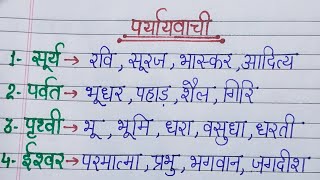 पर्यायवाची
1- सूर्य → रवि, सूरज, भास्कर, आदित्य
2- पर्वत → भूधर, पहाड़, शैल, गिरि
3- पृथ्वी → भू, भूमि, धरा, वसुधा, धरती
4- ईश्वर → परमात्मा, प्रभु, भगवान, जगदीश